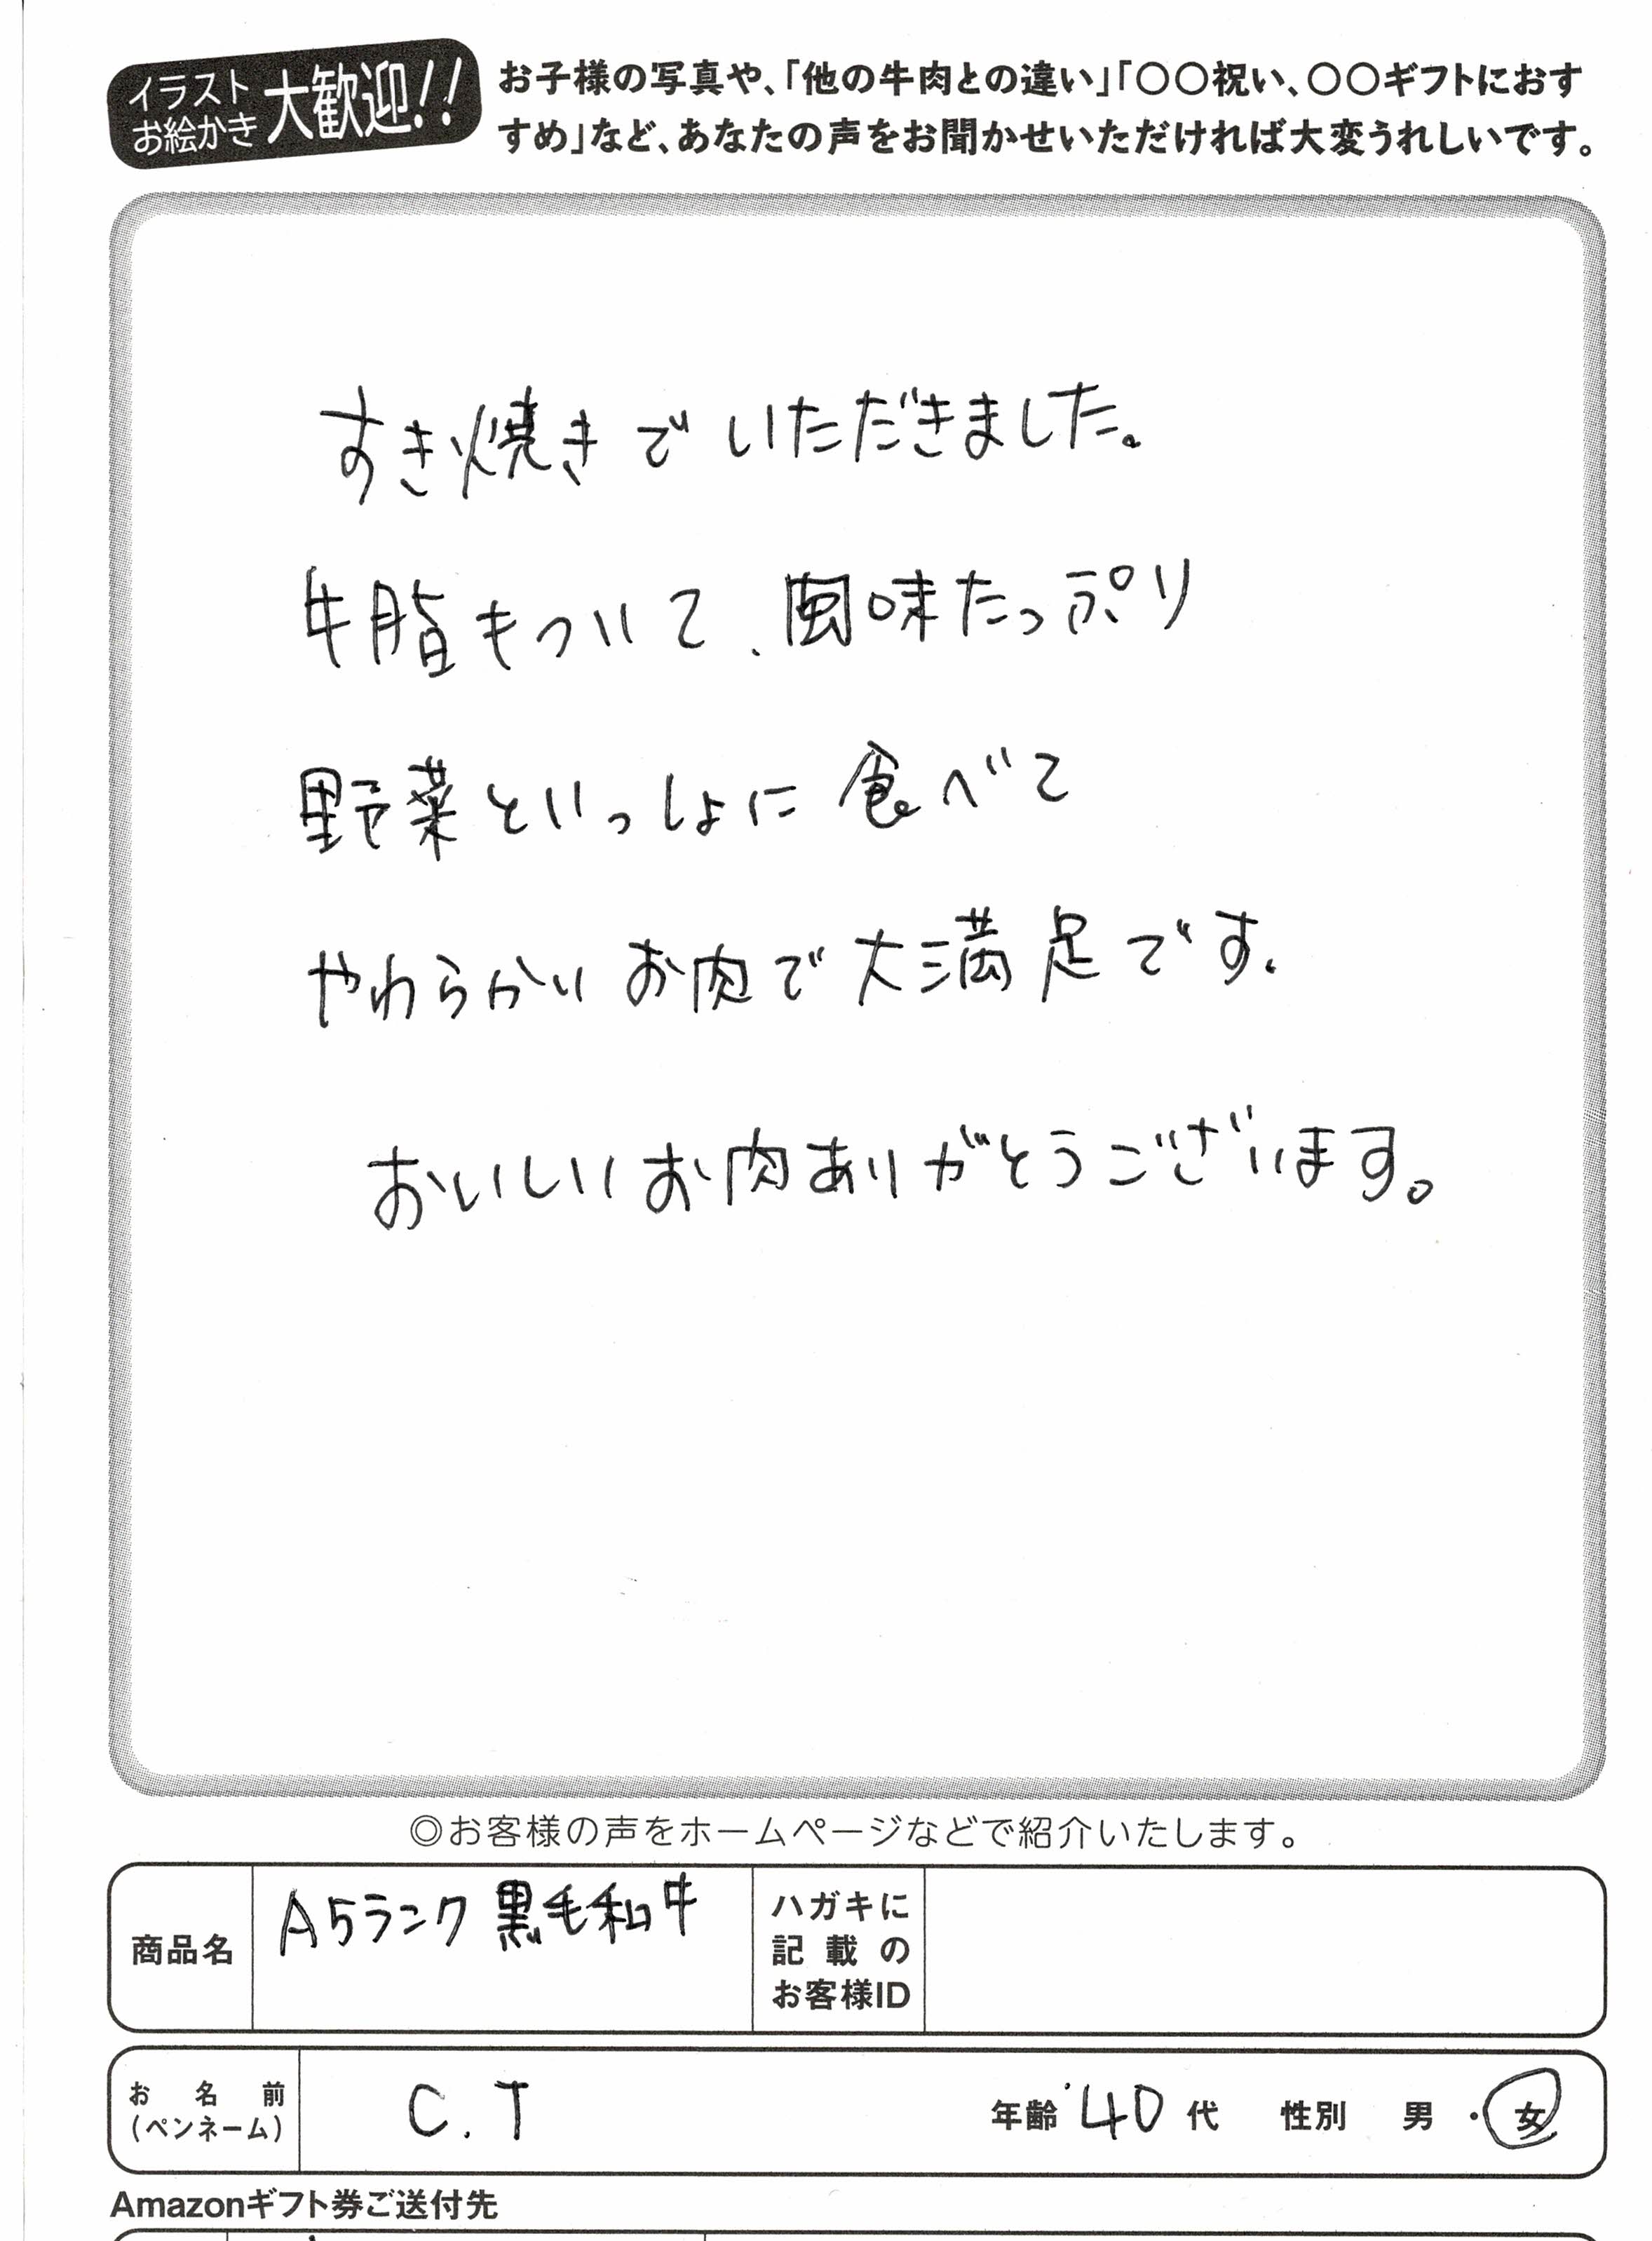 イラスト
お絵かき
大歓迎!!
お子様の写真や、「他の牛肉との違い」「〇〇祝い、〇〇ギフトにおす
すめ」など、あなたの声をお聞かせいただければ大変うれしいです。
すき焼きでいただきました。
牛脂もついて、風味たっぷり
野菜といっしょに食べて
やわらかいお肉で大満足です。
おいしいお肉ありがとうございます。
◎お客様の声をホームページなどで紹介いたします。
商品名
A5ランク黒毛和牛
ハガキに
記載の
お客様ID
お名前
(ペンネーム)
C.T
年齢 40代 性別 男・女
Amazonギフト券ご送付先